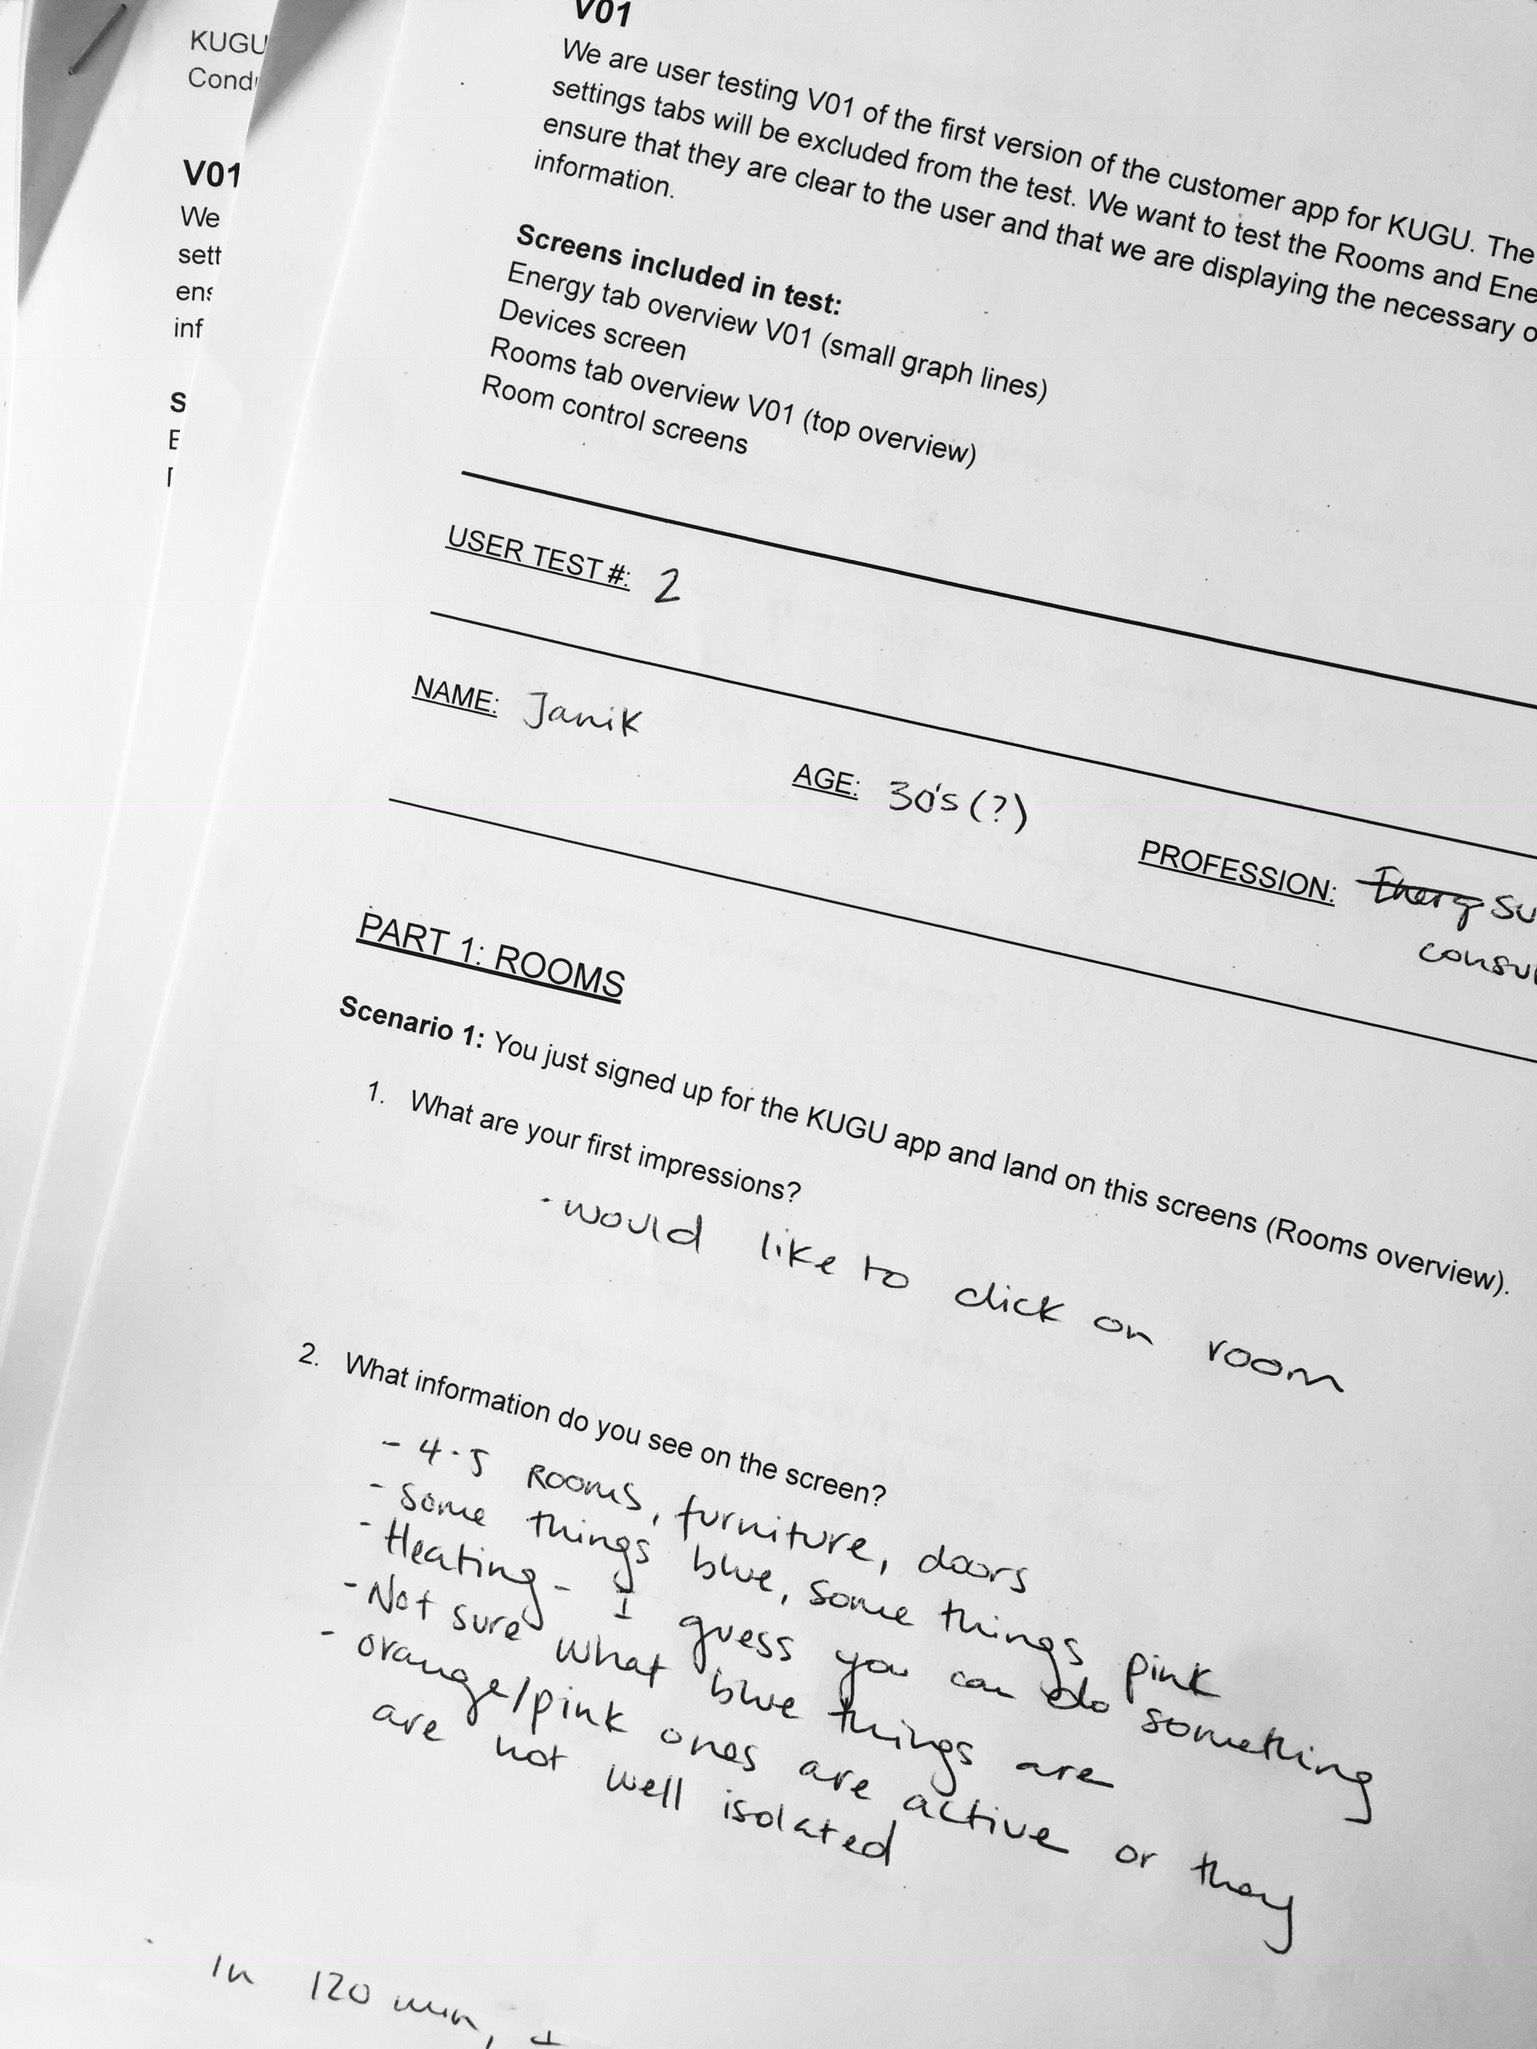 KUGU
V01
We
sett
inf
S
E
V01
We are user testing V01 of the first version of the customer app for KUGU. The
settings tabs will be excluded from the test. We want to test the Rooms and Ene
ensure that they are clear to the user and that we are displaying the necessary o
information.
Screens included in test:
Energy tab overview V01 (small graph lines)
Devices screen
Rooms tab overview V01 (top overview)
Room control screens
USER TEST #: 2
NAME: Janik
AGE: 30's (?)
PROFESSION: Energ su
consul
PART 1: ROOMS
Scenario 1: You just signed up for the KUGU app and land on this screens (Rooms overview).
1. What are your first impressions?
- would like to click on room
2. What information do you see on the screen?
- 4-5 Rooms, furniture, doors
- some things blue, some things pink
- Heating - I guess you can do something
- Not sure what blue things are
- orange/pink ones are active or they
are not well isolated
In 120 min, I